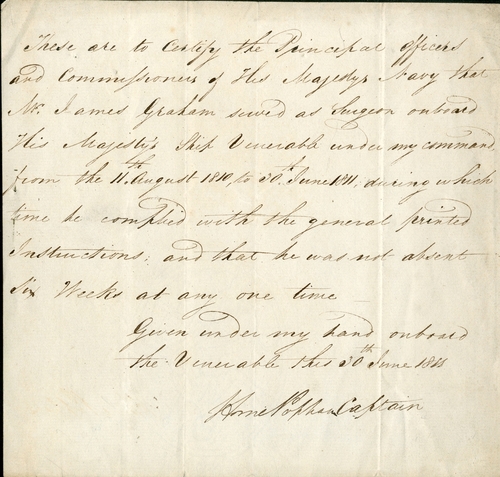 These are to Certify the Principal Officers
and Commissioners of His Majestys Navy that
Mr. James Graham served as Surgeon onboard
His Majesty's Ship Venerable under my command,
from the 11th August 1810, to 30th June 1811; during which
time he complied with the general printed
Instructions; and that he was not absent
Six Weeks at any one time —
Given under my hand onboard
the Venerable this 30th June 1811
Home Popham Captain